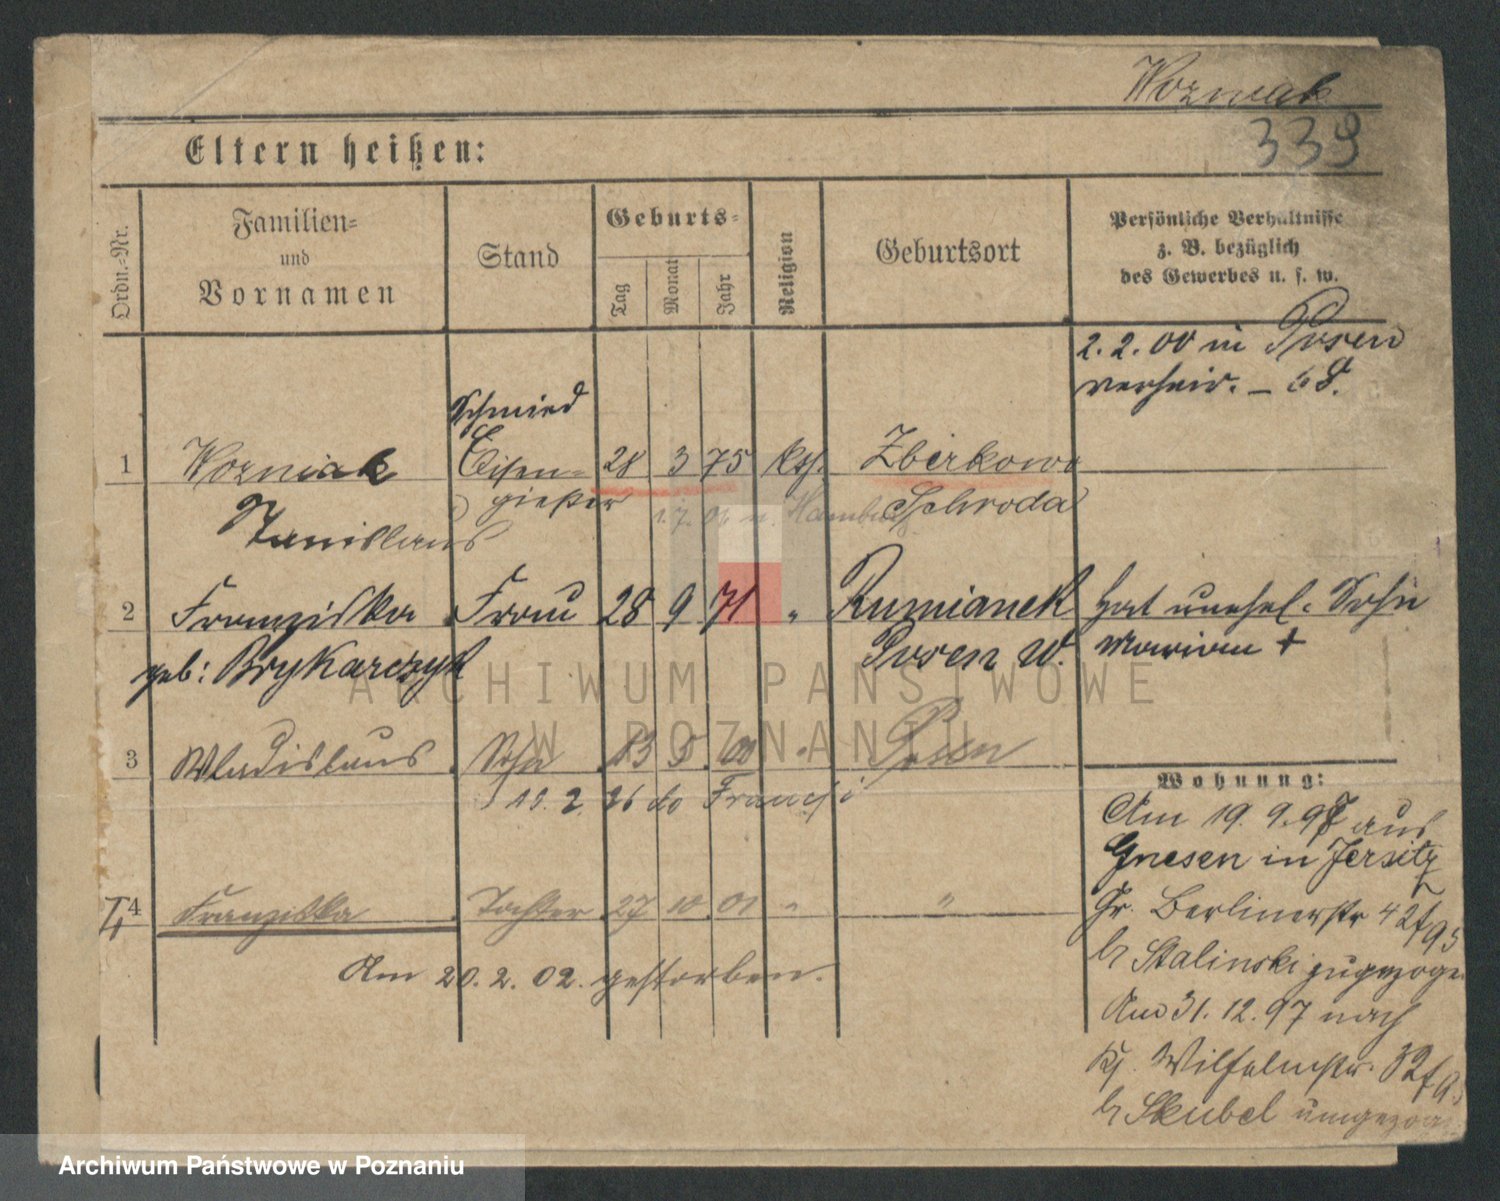 Wozniak
339
Eltern heißen:
Ordn.-Nr.
Familien-
und
Vornamen
Stand
Geburts-
Tag
Monat
Jahr
Religion
Geburtsort
Persönliche Verhältnisse
z. B. bezüglich
des Gewerbes u. s. w.
2. 2. 00 in Posen
verheir.
Schmied
1 Wozniak Eisen- 28 3 75 kth. Zberkowo
gießer
Stanislaus Schroda
1. 7. 06 n. Hamburg
2 Franziska Frau 28 9 71 " Rumianek hat unehel. Sohn
geb: Brykarczyk Posen W. Marian +
3 Wladislaus Sohn 13 5 00 " Posen
Wohnung:
Am 19. 9. 97 aus
Gnesen in Jersitz
Gr. Berlinerstr 42
b Stalinski zugezogen
Am 31. 12. 97 nach
Wilhelmstr. 32
b Skubel umgezog
4 Franziska Tochter 27 10 01 " "
Am 20. 2. 02. gestorben.
ARCHIWUM PAŃSTWOWE
W POZNANIU
Archiwum Państwowe w Poznaniu